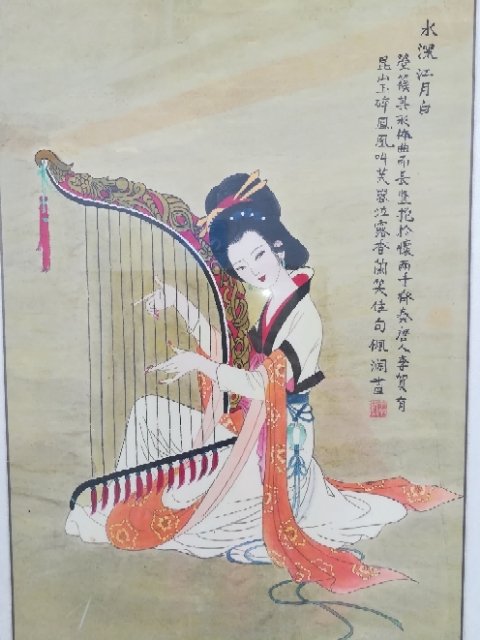 水深江月白
箜篌其形体曲而長竖抱於懷兩手弹奏唐人李賀有
昆山玉碎鳳凰叫芙蓉泣露香蘭笑佳句佩润